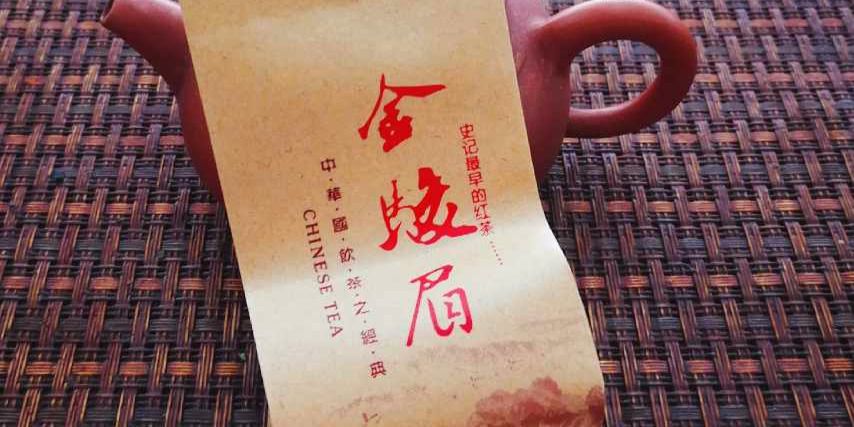 史记最早的红茶……
金骏眉
中·華·國·飲·茶·之·經·典
CHINESE TEA